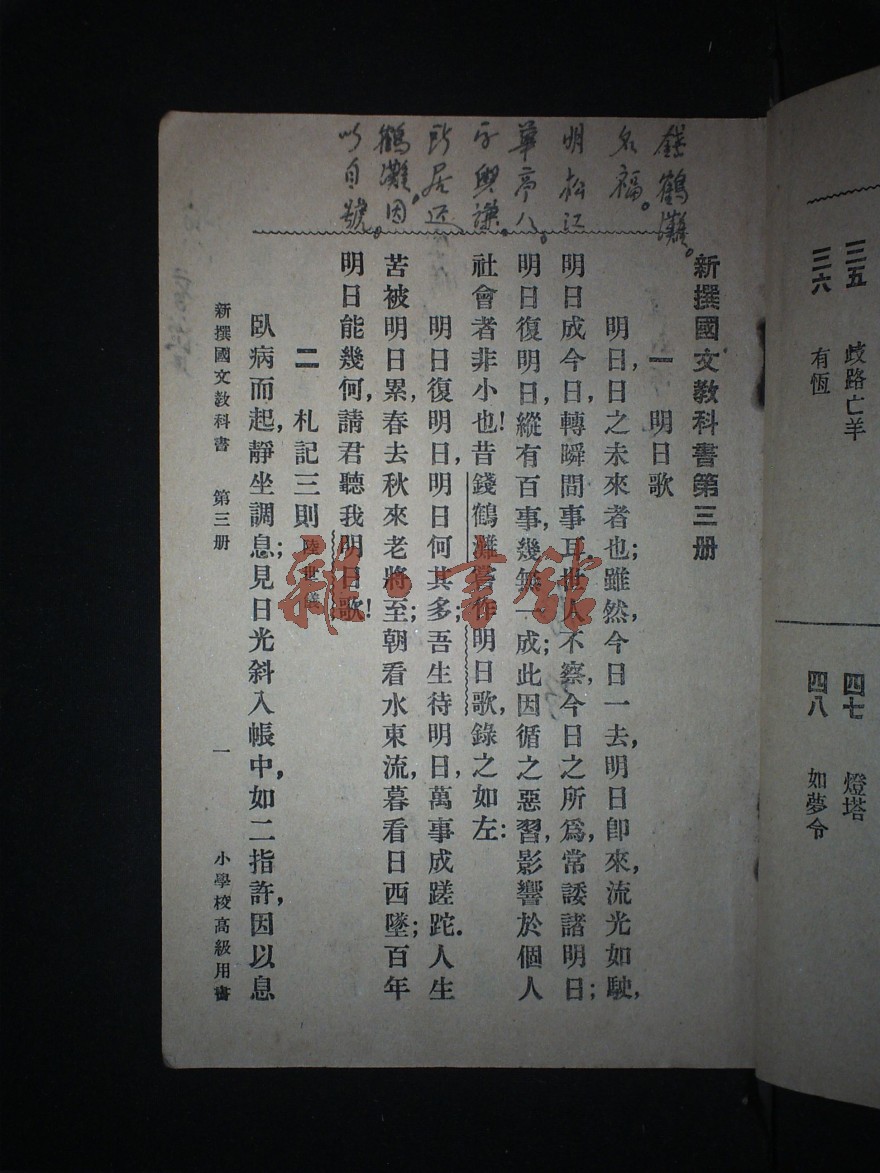 三五 歧路亡羊
三六 有恆
四七 燈塔
四八 如夢令
錢鶴灘。
名福。
明松江
華亭人。
字與謙。
所居近
鶴灘。因
以自號。
新撰國文教科書第三册
一 明日歌
明日,日之未來者也;雖然,今日一去,明日卽來,流光如駛,
明日成今日,轉瞬間事耳。世人不察,今日之所爲,常諉諸明日;
明日復明日,縱有百事,幾無一成;此因循之惡習,影響於個人
社會者非小也!昔錢鶴灘嘗作明日歌,錄之如左:
明日復明日,明日何其多;吾生待明日,萬事成蹉跎.人生
苦被明日累,春去秋來老將至;朝看水東流,暮看日西墜;百年
明日能幾何,請君聽我明日歌!
二 札記三則 陸世儀
臥病而起,靜坐調息;見日光斜入帳中,如二指許,因以息
新撰國文教科書 第三册 一 小學校高級用書
雜·書館